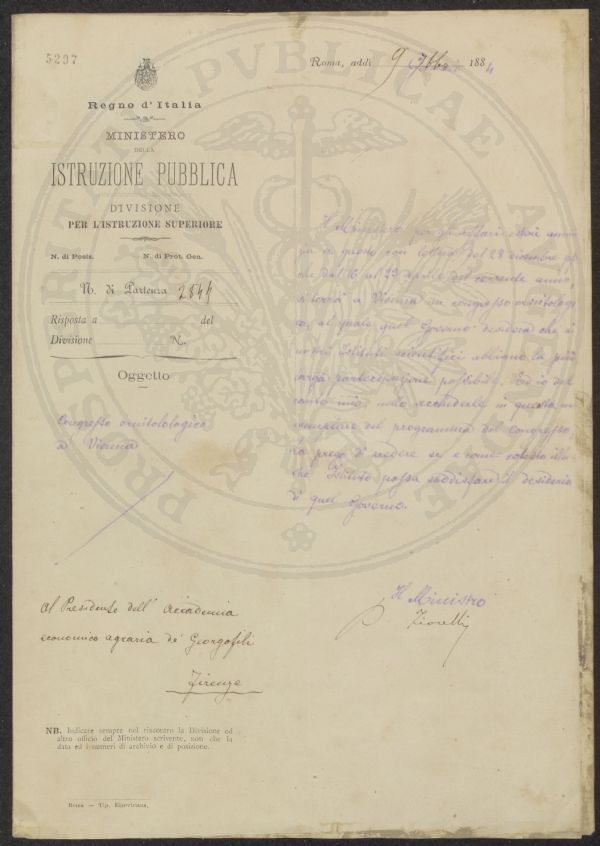 5297
Roma, addì 9 7bbr. 1884
Regno d'Italia
MINISTERO
DELLA
ISTRUZIONE PUBBLICA
DIVISIONE
PER L'ISTRUZIONE SUPERIORE
N. di Posiz. N. di Prot. Gen.
N. di Partenza 2844
Risposta a del
Divisione N.
Oggetto
Congresso ornitolologico
a Vienna
Il Ministero per gli affari esteri
a questo con lettera del 28 dicembre
che dal 16 al 23 aprile del corrente anno,
si terrà a Vienna un congresso ornitologi
co, al quale quel Governo desidera che i
nostri Istituti scientifici abbiano la più
larga partecipazione possibile. Ed io dal
canto mio nello accluderle in questa un
esemplare del programma del Congresso,
La prego di vedere se e come cotesto illu
stre Istituto possa soddisfare il desiderio
di quel Governo.
Il Ministro
Fiorelli
Al Presidente dell'Accademia
economico agraria de' Georgofili
Firenze
NB. Indicare sempre nel riscontro la Divisione od
altro ufficio del Ministero scrivente, non che la
data ed i numeri di archivio e di posizione.
Roma — Tip. Elzeviriana.
PROSPERITATI PVBLICAE AVGENDAE